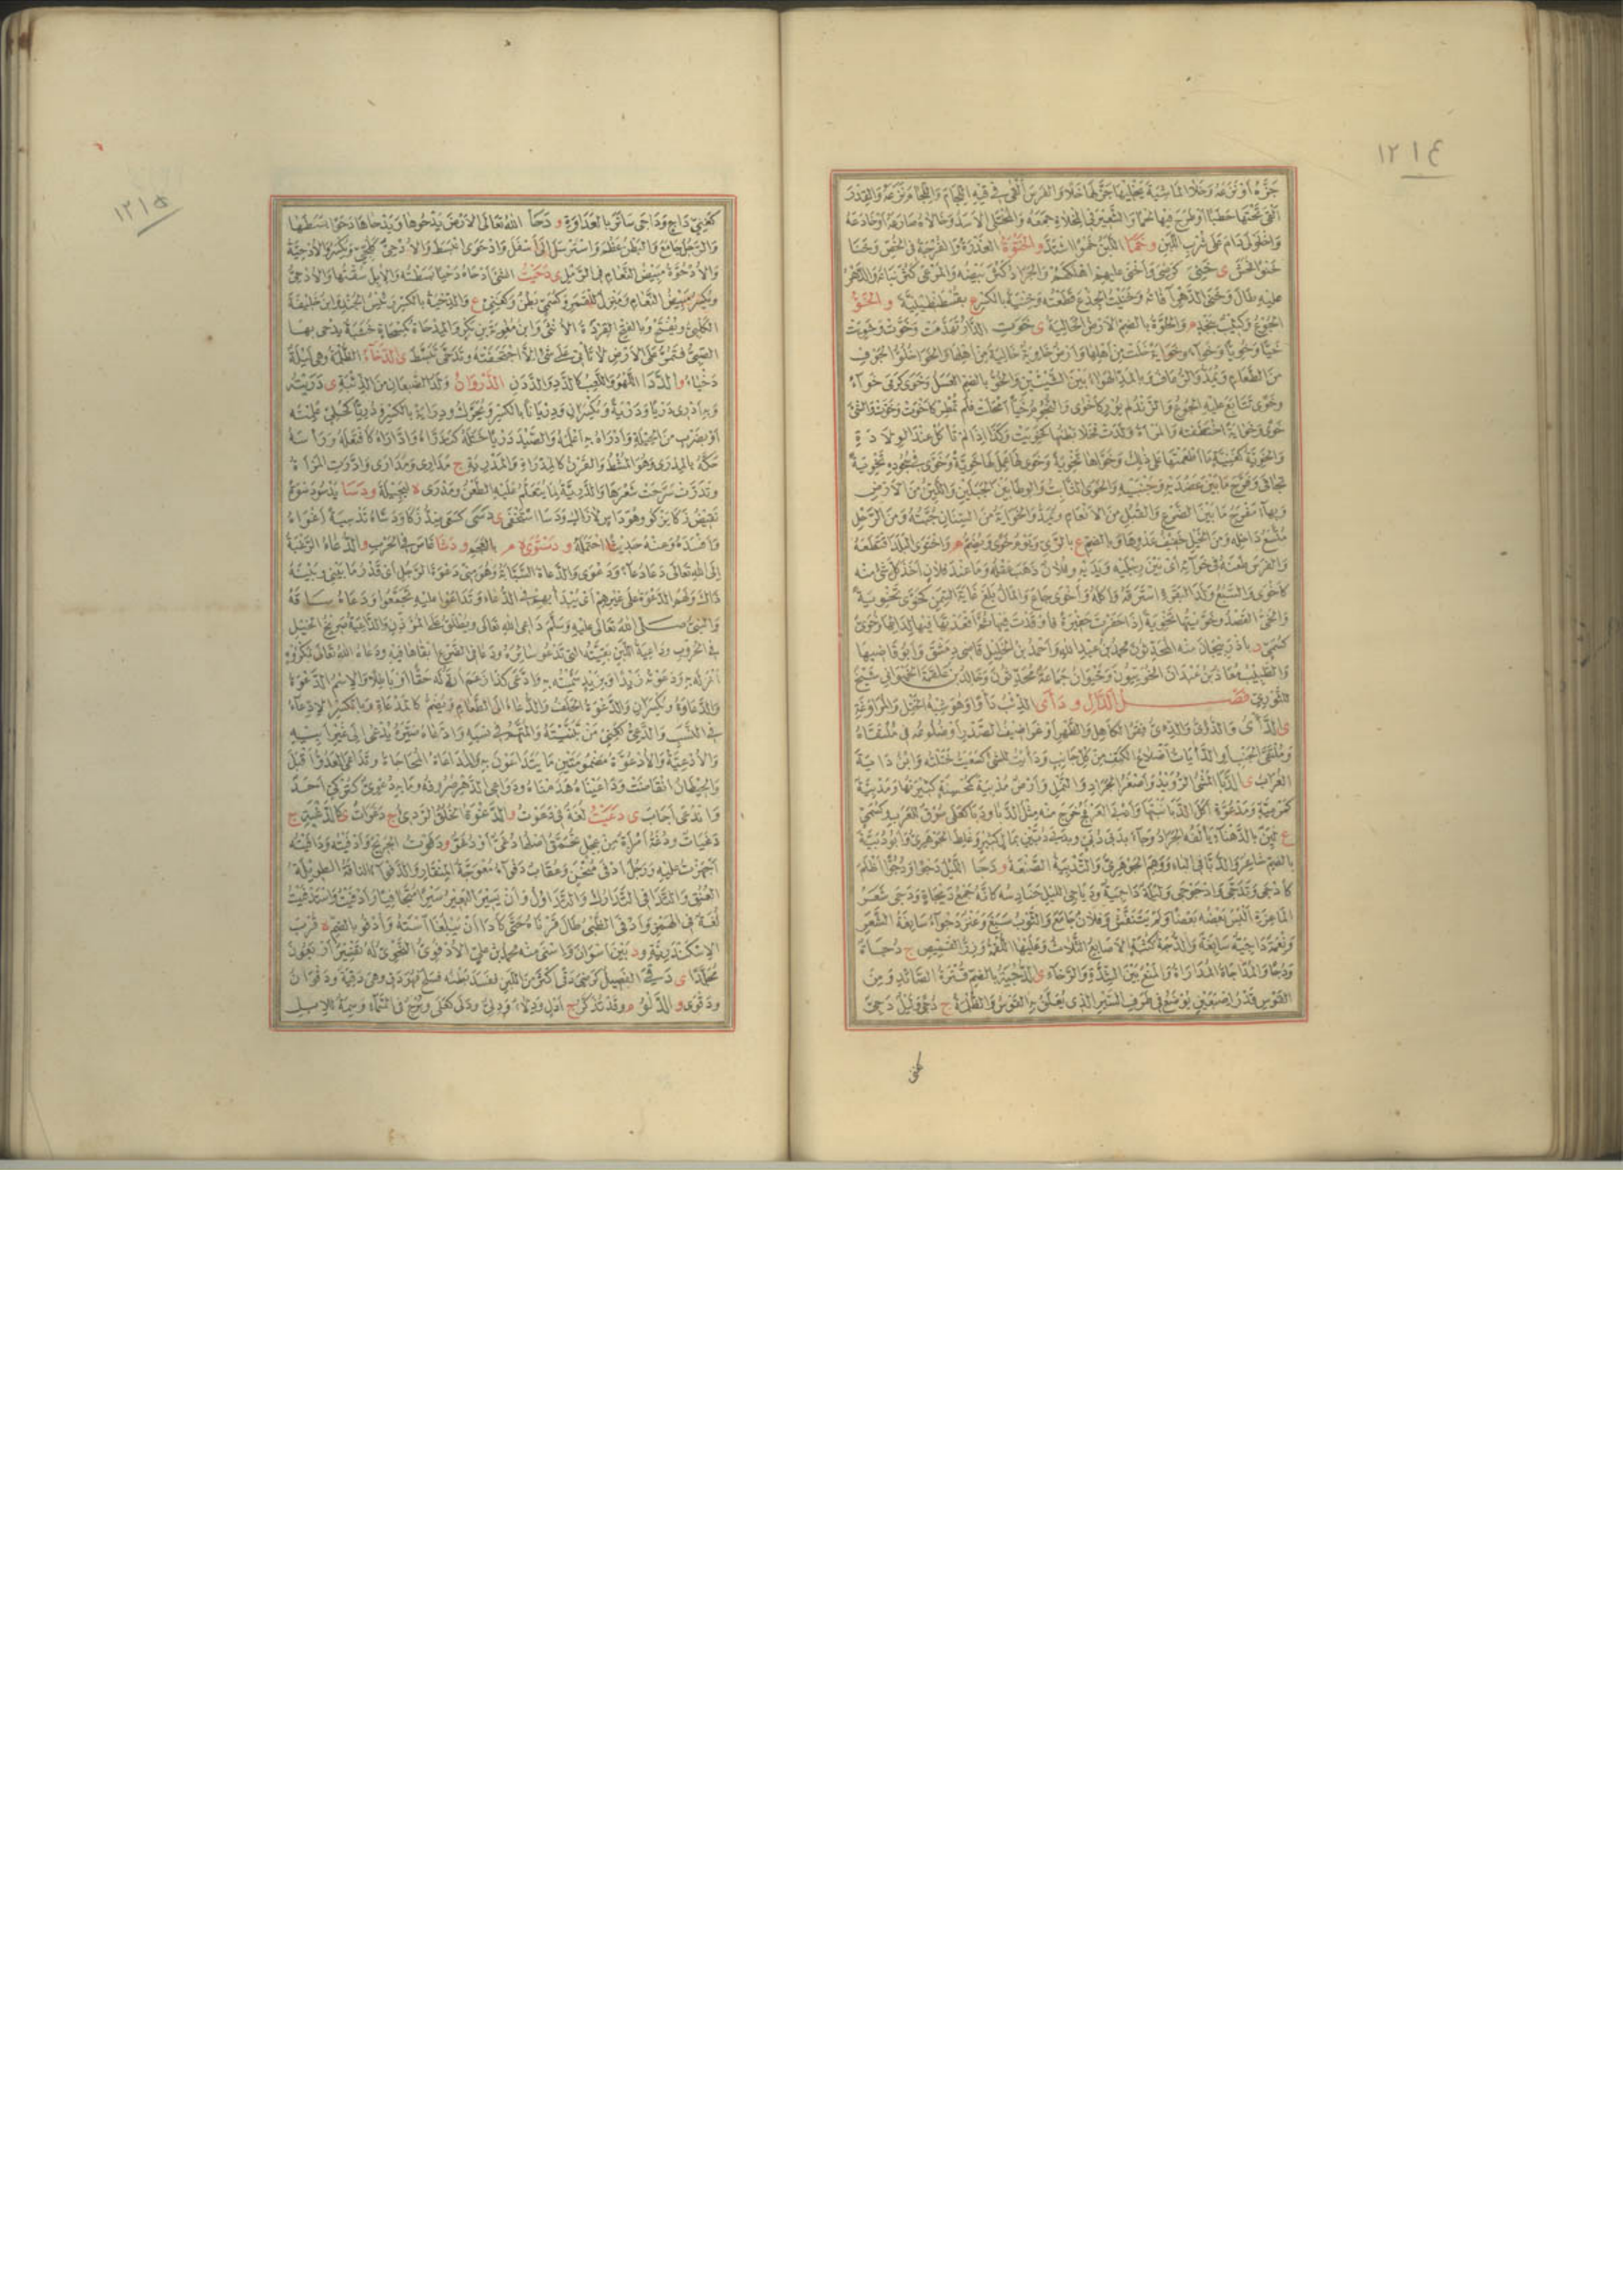 ١٢١٤
جزه أو نزعه وخلا الماشية يخليها جز لها خلا والفرس ألقى في فيه اللجام واللجام نزعه والقدر
ألقى تحتها حطبا أو طرح فيها لحما والشعير في المخلاة جمعه والمختلي الأسد وخالاه صارعه أو خادعه
واخلولى دام على شرب اللبن و خما اللبن خموا اشتد و الخنوة العذرة والفرجة في الخص وخنا
خنوا أفحش ى خنى كرضى وأخنى عليهم أهلكهم والجراد كثر بيضه والمرعى كثر نباته والدهر
عليه طال وخنى الدهر آفاته وخنيت الجذع قطعته وخنية بالكسر ع بقسطنطينية و الخو
الجوع وكثيب بنجد م والخوة بالضم الأرض الخالية ى خوت الدار تهدمت وخوت وخويت
خيا وخويا وخواء وخواية خلت من أهلها وأرض خاوية خالية من أهلها والخوا خلو الجوف
من الطعام ويمد والرعاف وبالمد الهواء بين الشيئين والخو بالضم العسل وخوى كرمى خواء
وخوى تتابع عليه الجوع والزند لم يور كأخوى والنجوم خيا أمحلت فلم تمطر كأخوت وخوت والشئ
خوى وخواية اختطفه والمرأة ولدت فخلا بطنها كخويت وكذا إذا لم تأكل عند الولادة
والخوية كغنية ما أطعمتها على ذلك وخواها تخوية وخوى لها عمل لها خوية وخوى في سجوده تخوية
تجافى وفرج ما بين عضديه وجنبيه والخوى الثابت والوطاء بين الجبلين واللين من الأرض
وبهاء مفرج ما بين الضرع والقبل من الأنعام ويمد والخواية من السنان جبته ومن الرحل
متسع داخله ومن الخيل حفيف عدوها وبالضم ع بالري ويوم خوى ويضم م واختوى البلد اقتطعه
والفرس طعنه في خوائه أي بين رجليه ويديه وفلان ذهب عقله وما عند فلان أخذ كل شئ منه
كأخوى والسبع ولد البقرة استرقه وأكله وأخوى جاع والمال بلغ غاية السمن كخوى تخوية
والخي القصد وخويتها تخوية إذا حفرت حفيرة فأوقدت فيها ثم أقعدتها فيها لدائها وخوى
كسمي د بأذربيجان منه المحدثون محمد بن عبد الله وأحمد بن الخليل قاضي دمشق وأبو قاضيها
والطبيب معاذ بن عبدان الخويون وخيوان جماعة محدثون وخالد بن علقمة الخيواني شيخ
للثوري فصل الدال و دأى الذئب دأوا وهو شبه الختل والمراوغة
ى الدأى والدئي والدئي فقر الكاهل والظهر أو غراضيف الصدر أو ضلوعه في ملتقاه
وملتقى الجنب أو الدأيات أضلاع الكتف من كل جانب ودأيت للشئ كسعيت ختلته وابن داية
الغراب ى الدبا المشي الرويد وأصغر الجراد والنمل وأرض مدبية كمحسنة كثيرتها ومدبية
كمرمية ومدعوة أكل الدبا نبتها وأدبى العرفج خرج منه مثل الدبا ودبا كعلى سوق للعرب وكسمي
ع لين بالدهناء يألفه الجراد وجاء بدبى دبي وبدبى دبيين بمال كثير وغلط الجوهري وأبو دبية
بالضم شاعر والدباء في الباء ووهم الجوهري والتدبية الصنعة و دجا الليل دجوا ودجوا أظلم
كأدجى وتدجى وادجوجى وليلة داجية ودياجي الليل حنادسه كأنه جمع ديجاة ودجى شعر
الماعزة ألبس بعضه بعضا ولم ينتفش وفلان جامع والثوب سبغ وعنز دجواء سابغة الشعر
ونعمة داجية سابغة والدجة كثبة الأصابع الثلاث وعليها اللقمة وزر القميص ج دجاة
ودجا والمداجاة المداراة والمنع بين الشدة والرخاء ى الدجية بالضم قترة الصائد ومن
القوس قدر إصبعين يوضع في طرف السير الذي يعلق به القوس والظلمة ج دجى وليل دجي
كغني
١٢١٥
كغني داج وداجى ساتر بالعداوة و دحا الله تعالى الأرض يدحوها ويدحاها دحوا بسطها
والرجل جامع والبطن عظم واسترسل إلى أسفل وادحوى انبسط والأدحي كلجي ويكسر والأدحية
والأدحوة مبيض النعام في الرمل ى دحيت الشئ أدحاه دحيا بسطته والإبل سقتها والأدحي
ويكسر مبيض النعام ومنزل للقمر وكسمي بطن وكغني ع والدحية بالكسر رئيس الجند وابن خليفة
الكلبي ويفتح وبالفتح القردة الأنثى وابن معاوية بن بكر والمدحاة كمسحاة خشبة يدحى بها
الصبي فتمر على الأرض لا تأتي على شئ إلا اجتحفته وتدحى تبسط ى الدخا الظلمة وهي ليلة
دخياء و الددا اللهو واللعب كالدد والددن الدروان ولد الضبعان من الذئبة ى دريته
وبه أدري دريا ودرية ويكسران ودريانا بالكسر ويحرك ودراية بالكسر ودريا كحلي علمته
أو بضرب من الحيلة وأدراه به أعلمه والصيد دريا ختله كتدراه وادراه كافتعله ورأسه
حكه بالمدرى وهو المشط والقرن كالمدراة والمدرية ج مدار ومدارى وادرت المرأة
وتدرت سرحت شعرها والدرية لما يتعلم عليه الطعن ومدرى ة لبجيلة و دسا يدسو دسوة
نقيض زكا يزكو وهو داس لا زاك ودسا استخفى ى دسى كسعى ضد زكا ودساه تدسية أغواه
وأفسده وعنه حديثا احتمله و دستوى ة م بالعجم و دشا غاص في الحرب و الدعاء الرغبة
إلى الله تعالى دعا دعاء ودعوى والدعاءة السبابة وهو مني دعوة الرجل أي قدر ما بيني وبينه
ذاك ولهم الدعوة على غيرهم أي يبدأ بهم في الدعاء وتداعوا عليه تجمعوا ودعاه ساقه
والنبي صلى الله تعالى عليه وسلم داعي الله تعالى ويطلق على المؤذن والداعية صريخ الخيل
في الحروب وداعية اللبن بقيته التي تدعو سائره ودعا في الضرع أبقاها فيه ودعاه الله تعالى بمكروه
أنزله به ودعوته زيدا وبزيد سميته به وادعى كذا زعم أنه له حقا أو باطلا والاسم الدعوة
والدعاوة ويكسران والدعوة الحلف والدعاء إلى الطعام ويضم كالمدعاة وبالكسر الادعاء
في النسب والدعي كغني من تبنيته والمتهم في نسبه وادعاه صيره يدعى إلى غير أبيه
والأدعية والأدعوة مضمومتين ما يتداعون به والمداعاة المحاجاة وتداعى العدو أقبل
والحيطان انقاضت وداعيناها هدمناها ودواعي الدهر صروفه وما به دعوي كتركي أحد
واندعى أجاب ى دعيت لغة في دعوت و الدغوة الخلق الردئ ج دغوات ى كالدغية ج
دغيات ودغة امرأة من عجل تحمق أصلها دغي أو دغو و دفوت الجريح وأدفيته ودافيته
أجهزت عليه ورجل أدفى منحن وعقاب دفواء معوجة المنقار والدفواء الناقة الطويلة
العنق والتدافي التدارك والتداول وأن يسير البعير سيرا متجافيا وأدفيت واستدفيت
لغة في الهمز وأدفى الظبي طال قرناه حتى كادا أن يبلغا استه وأدفو بالضم ة قرب
الإسكندرية و د بين أسوان وإسنى منه محمد بن علي الأدفوي النحوي له تفسير أربعون
مجلدا ى دقي الفصيل كرضي دقى أكثر من اللبن ففسد بطنه فسلح فهو دق وهي دقية ودقوان
ودقوى و الدلو م وقد تذكر ج أدل ودلاء ودلي ودلى كعلى وبرج في السماء وسمة للإبل